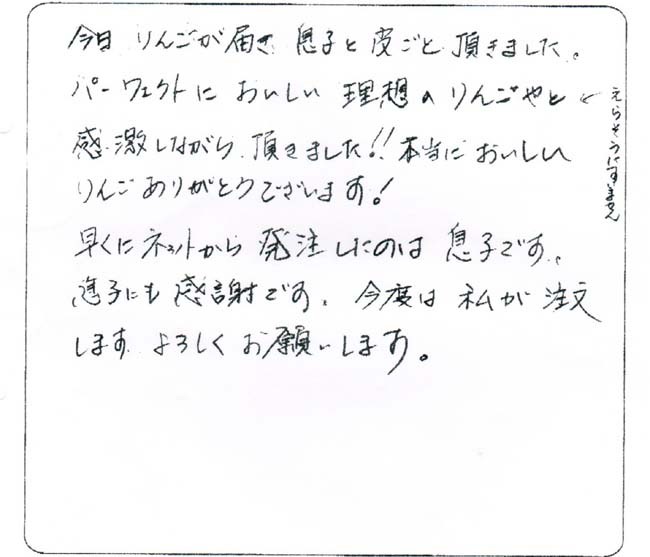 今日 りんごが届き 息子と皮ごと頂きました。
パーフェクトに おいしい 理想のりんごやと
感激しながら 頂きました!! 本当においしい
りんごありがとうございます!
早くにネットから 発注したのは 息子です。
息子にも 感謝です。 今度は 私が 注文
します よろしく お願いします。
←えらそうにすません